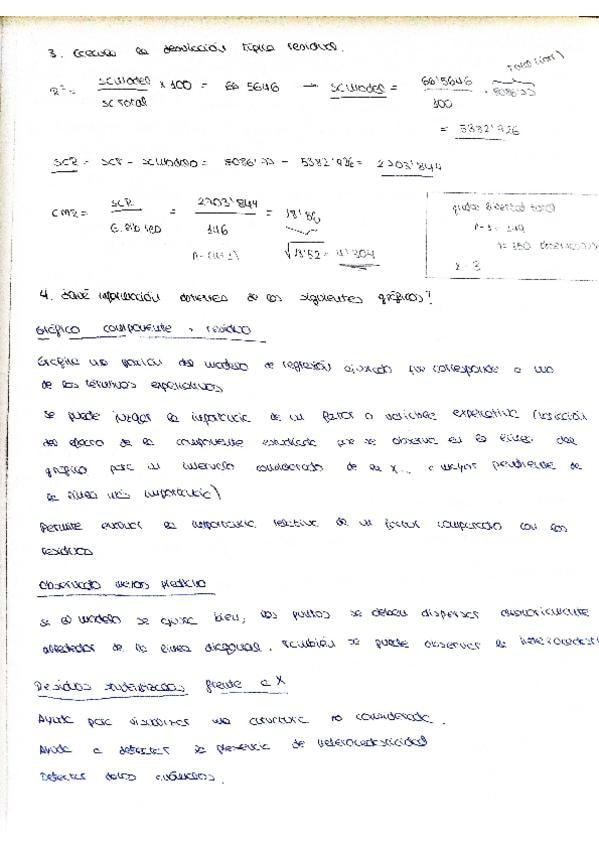 3. Calcula la desviación típica residual.
R² = SCModelo / SCTotal × 100 = 66'5646 → SCModelo = 66'5646 / 100 · 8086'77 Total (corr)
= 5382'926
SCR = SCT - SCModelo = 8086'77 - 5382'926 = 2703'844
CMR = SCR / G. lib red = 2703'844 / 146 = 18'52
√18'52 = 4'304
grados libertad total
n-1 = 149
n = 150 observaciones
4. ¿Qué información obtienes de los siguientes gráficos?
Gráfico componente + residuo
Grafica una porción del modelo de regresión ajustado que corresponde a uno
de los términos explicativos
Se puede juzgar la importancia de un factor o variable explicativa (variación
del efecto de la componente estudiada que se observa en la línea del
gráfico para un intervalo considerado de la X... a mayor pendiente de
la línea más importancia)
Permite evaluar la importancia relativa de un factor comparado con los
residuos
Observado versus predicho
Si el modelo se ajusta bien, los puntos se deben dispersar aleatoriamente
alrededor de la línea diagonal. También se puede observar la heterocedasti
Residuos studentizados frente a X
Ayuda para visualizar una curvatura no considerada.
Ayuda a detectar la presencia de heterocedasticidad
Detectar datos anómalos.